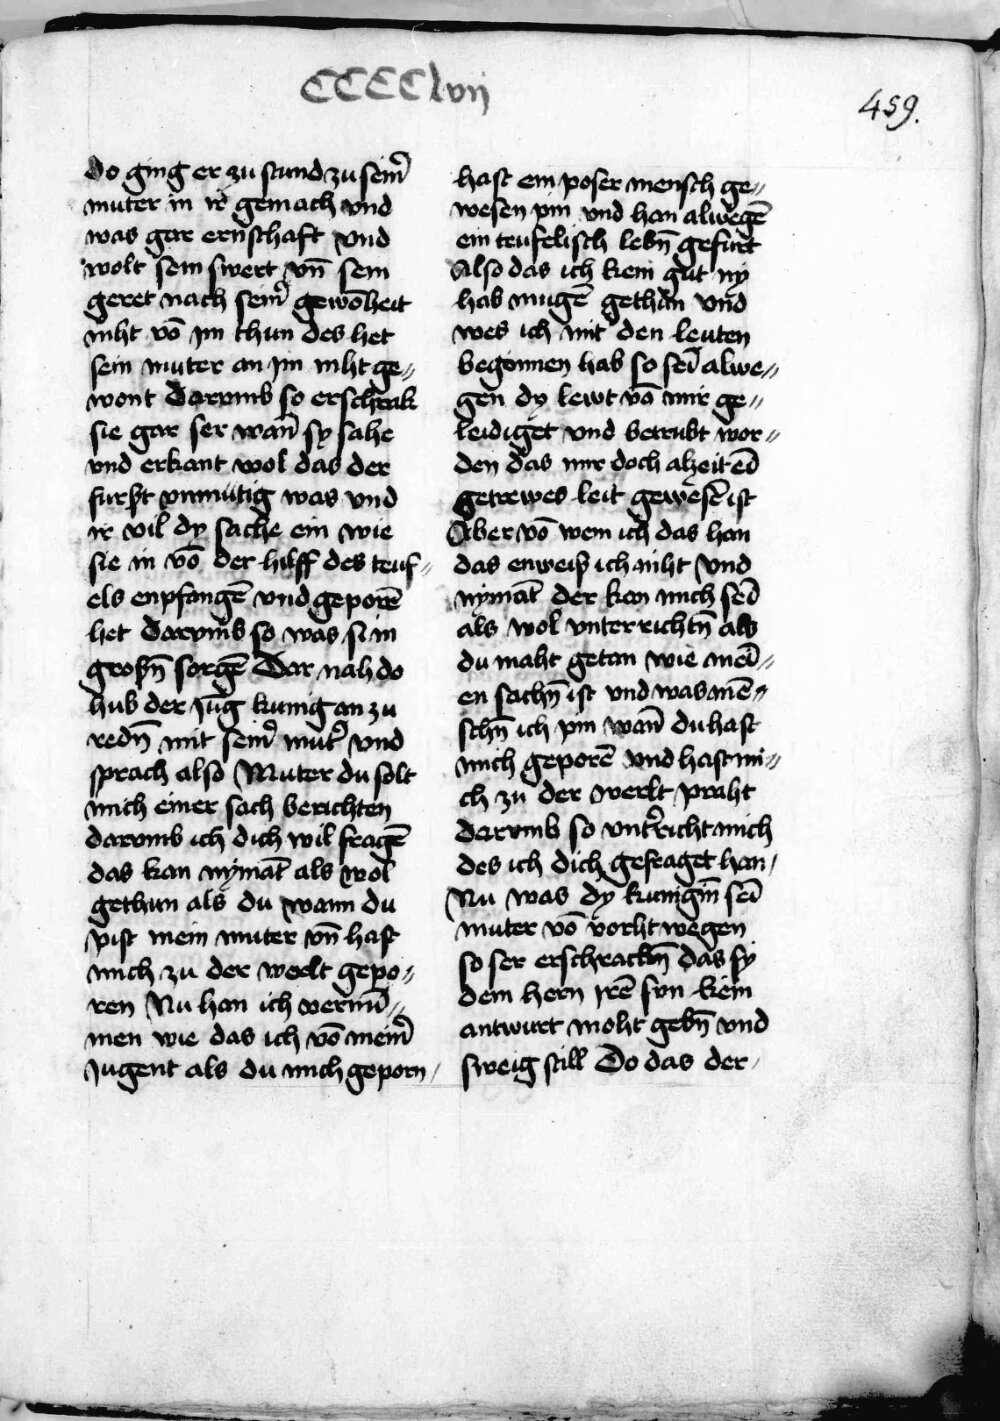 CCCClvij
459.
Do ging er zu stund zu seim̉
muter in ir gemach vnd
was gar ernschaft vnd
wolt sein swert vn̄ sein
geret nach seim̉ gewōheit
niht vō jm thun des het
sein muter an jm niht ge„
wont Darvmb so erschrak
sie gar ser wan̄ sy sahe
vnd erkant wol das der
furst vnmutig was vnd
ir vil dy sache ein wie
sie in vō der hilff des teuf„
els enpfangē vnd geporē
het Darvmb so was si in
groſſn̄ sorgē Dar nah do
hub der jūg kunig an zu
redn̄ mit seim̉ mut̉ vnd
sprach also Muter du solt
mich einer sach berichten
darvmb ich dich wil fragē
das kan nymāt als wol
gethun als du wann du
pist mein muter vn̄ hast
mich zu der werlt gepo„
ren Nu han ich vernū„
men wie das ich vō meim̉
jugent als du mich geporn
hast ein poser mensch ge„
wesen pin vnd han alwegē
ein teufelisch lebn̄ gefurt
Also das ich kein gut ny
hab mugē gethan vnd
wes ich mit den leuten
begonnen hab so sei̅ alwe„
gen dy lewt vō mir ge„
leidiget vnd betrubt wor„
den das mir doch alzeit ei̅
getrewes leit gewesē ist
Aber vō wem ich das han
das enweiß ich niht vnd
nymāt der kan mich sei̅d
als wol vnterrichtn̄ als
du maht getan wie mei̅„
en sachn̄ ist vnd was mē„
schn̄ ich pin wan̄ du hast
mich geporē vnd hast mi„
ch zu der werlt praht
darvmb so vnt̉richt mich
des ich dich gefraget han
Nu was dy kunigin̄ sei̅
muter vō vorht wegen
so ser erschrackn̄ das sy
dem hern jrē sun kein
antwurt moht gebn̄ vnd
sweig still Do das der